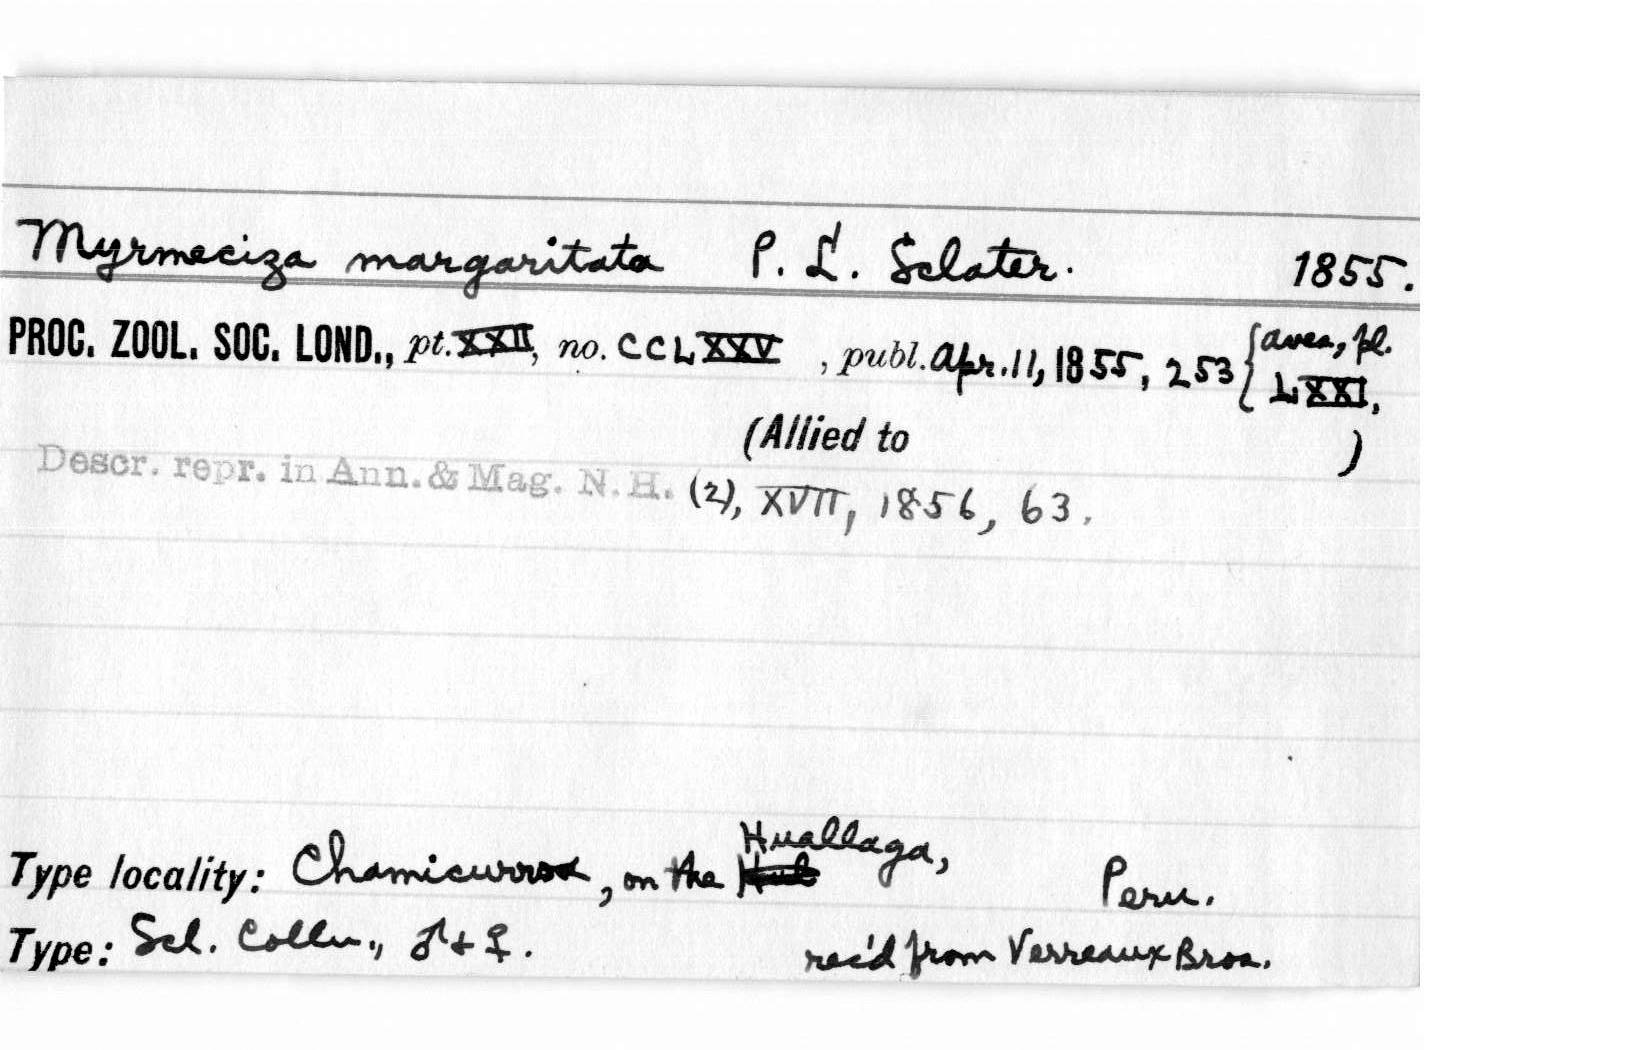 Myrmeciza margaritata P. L. Sclater. 1855.
PROC. ZOOL. SOC. LOND., pt. XXII, no. CCLXXV, publ. Apr. 11, 1855, 253 { Aves, pl. LXXI,
(Allied to )
Descr. repr. in Ann. & Mag. N. H. (2), XVII, 1856, 63.
Type locality: Chamicurros, on the Huallaga, Peru.
Type: Scl. Colln., ♂ + ♀. rec'd from Verreaux Bros.